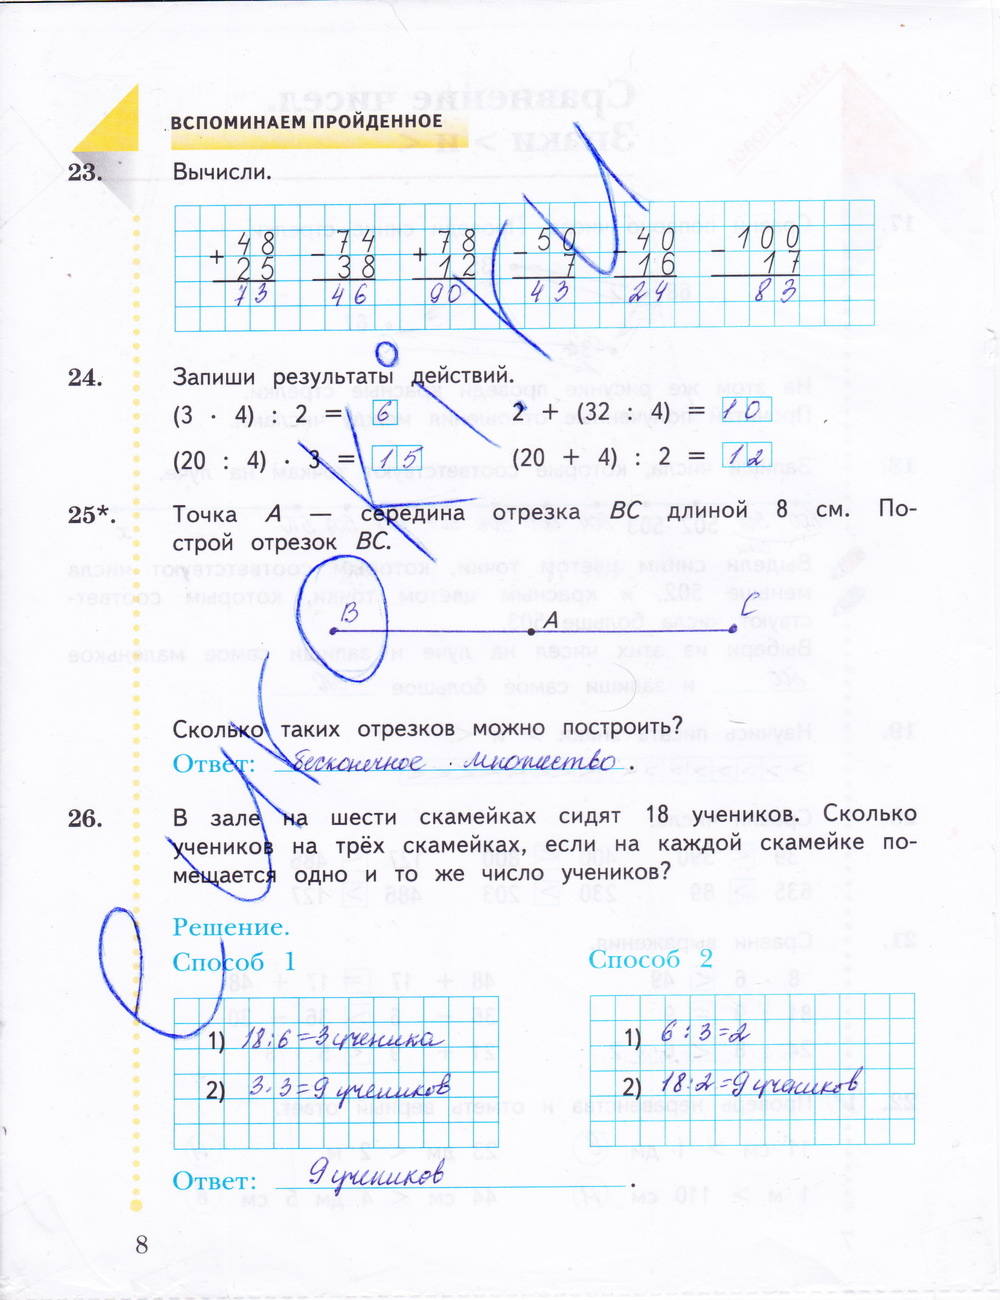 ВСПОМИНАЕМ ПРОЙДЕННОЕ
23. Вычисли.
+ 48 − 74 + 78 − 50 − 40 − 100
25 38 12 7 16 17
73 46 90 43 24 83
24. Запиши результаты действий.
(3 · 4) : 2 = 6 2 + (32 : 4) = 10
(20 : 4) · 3 = 15 (20 + 4) : 2 = 12
25*. Точка A — середина отрезка BC длиной 8 см. По-
строй отрезок BC.
B A C
Сколько таких отрезков можно построить?
Ответ: бесконечное множество.
26. В зале на шести скамейках сидят 18 учеников. Сколько
учеников на трёх скамейках, если на каждой скамейке по-
мещается одно и то же число учеников?
Решение.
Способ 1 Способ 2
1) 18:6=3 ученика 1) 6:3=2
2) 3·3=9 учеников 2) 18:2=9 учеников
Ответ: 9 учеников.
8